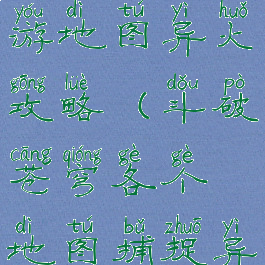 yóu dì tú yì huǒ
游地图异火
gōng lüè dǒu pò
攻略（斗破
cāng qióng gè gè
苍穹各个
dì tú bǔ zhuō yì
地图捕捉异